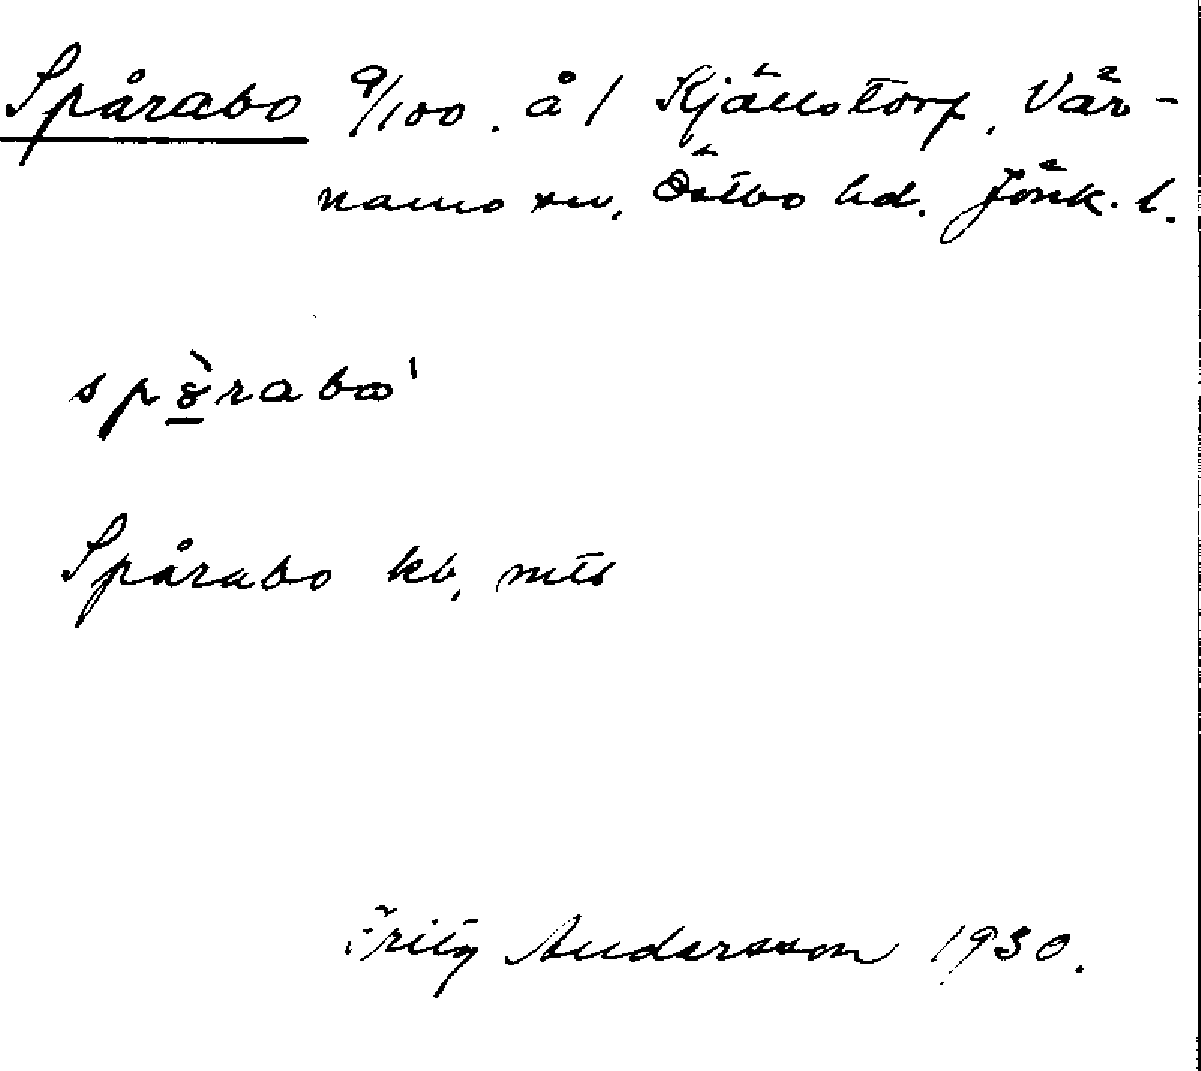 Spårabo 9/100. å 1 Kjällstorp, Vär-
namo sn, Östbo hd. Jönk. l.
spɤ̠̀rabꝏ'
Spårabo kb, mts
Fritz Andersson 1930.